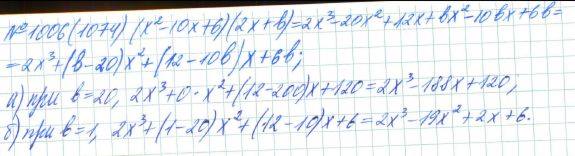 №1006(1074) (x²-10x+6)(2x+b)=2x³-20x²+12x+bx²-10bx+6b=
=2x³+(b-20)x²+(12-10b)x+6b;
а) при b=20, 2x³+0·x²+(12-200)x+120=2x³-188x+120;
б) при b=1, 2x³+(1-20)x²+(12-10)x+6=2x³-19x²+2x+6.